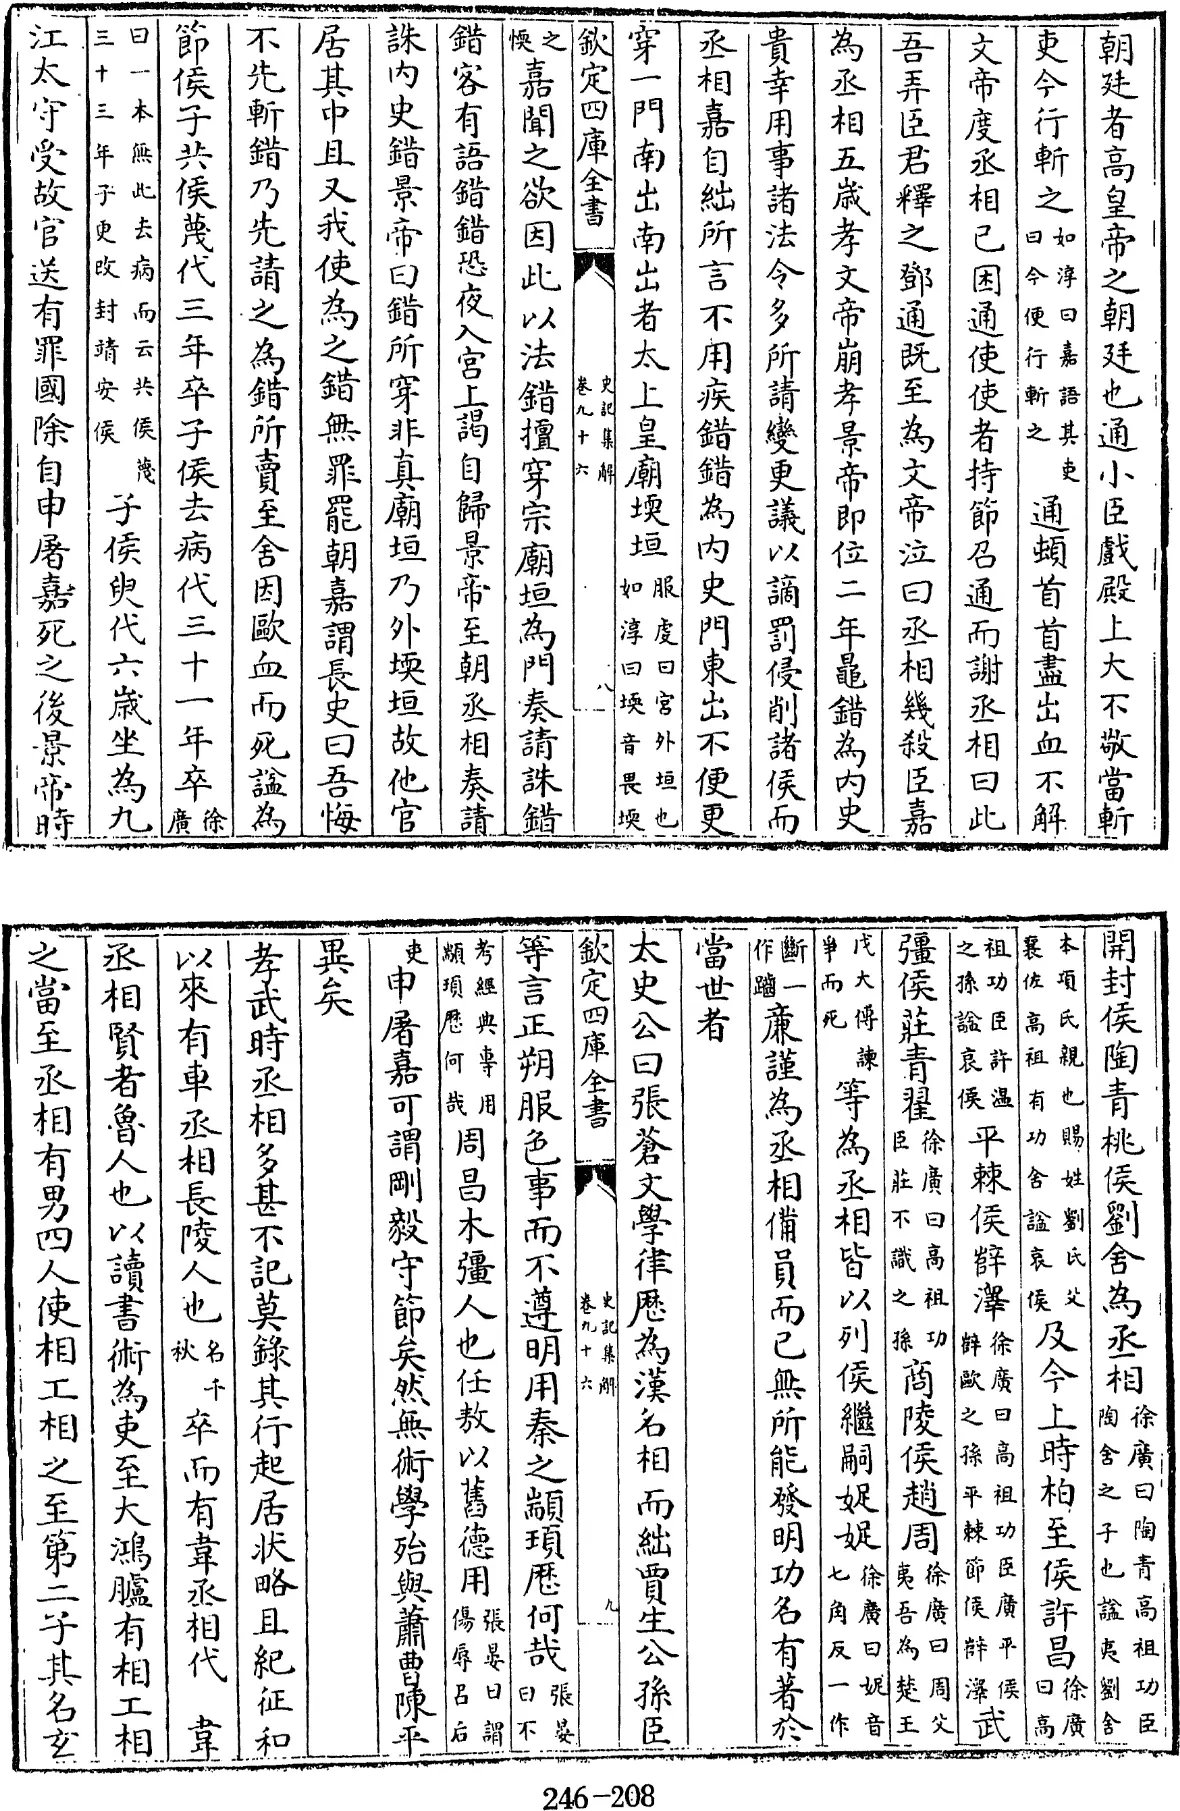 朝廷者高皇帝之朝廷也通小臣戲殿上大不敬當斬
吏今行斬之如淳曰嘉語其吏曰今便行斬之通頓首首盡出血不解
文帝度丞相已困通使使者持節召通而謝丞相曰此
吾弄臣君釋之鄧通既至為文帝泣曰丞相幾殺臣嘉
為丞相五歳孝文帝崩孝景帝即位二年鼂錯為内史
貴幸用事諸法令多所請變更議以謫罰侵削諸侯而
丞相嘉自絀所言不用疾錯錯為内史門東出不便更
穿一門南出南出者太上皇廟堧垣服虔曰宮外垣也如淳曰堧音畏堧
欽定四庫全書 史記集解 卷九十六 八
之愞嘉聞之欲因此以法錯擅穿宗廟垣為門奏請誅錯
錯客有語錯錯恐夜入宮上謁自歸景帝至朝丞相奏請
誅内史錯景帝曰錯所穿非真廟垣乃外堧垣故他官
居其中且又我使為之錯無罪罷朝嘉謂長史曰吾悔
不先斬錯乃先請之為錯所賣至舍因歐血而死諡為
節侯子共侯蔑代三年卒子侯去病代三十一年卒徐廣
曰一本無此去病而云共侯蔑三十三年子更改封靖安侯子侯臾代六歳坐為九
江太守受故官送有罪國除自申屠嘉死之後景帝時
開封侯陶青桃侯劉舍為丞相徐廣曰陶青高祖功臣陶舍之子也諡夷劉舍
本項氏親也賜姓劉氏父襄佐高祖有功舍諡哀侯及今上時柏至侯許昌徐廣曰高
祖功臣許温之孫諡哀侯平棘侯薛澤徐廣曰高祖功臣廣平侯薛歐之孫平棘節侯薛澤武
彊侯莊青翟徐廣曰高祖功臣莊不識之孫商陵侯趙周徐廣曰周父夷吾為楚王
戊大傅諫爭而死等為丞相皆以列侯繼嗣娖娖徐廣曰娖音七角反一作
斷一作躖廉謹為丞相備員而已無所能發明功名有著於
當世者
太史公曰張蒼文學律厯為漢名相而絀賈生公孫臣
欽定四庫全書 史記集解 卷九十六 九
等言正朔服色事而不遵明用秦之顓頊厯何哉張晏曰不
考經典專用顓頊厯何哉周昌木彊人也任敖以舊德用張晏曰謂傷辱呂后
吏申屠嘉可謂剛毅守節矣然無術學殆與蕭曹陳平
異矣
孝武時丞相多甚不記莫錄其行起居狀略且紀征和
以來有車丞相長陵人也名千秋卒而有韋丞相代 韋
丞相賢者魯人也以讀書術為吏至大鴻臚有相工相
之當至丞相有男四人使相工相之至第二子其名玄
246-208